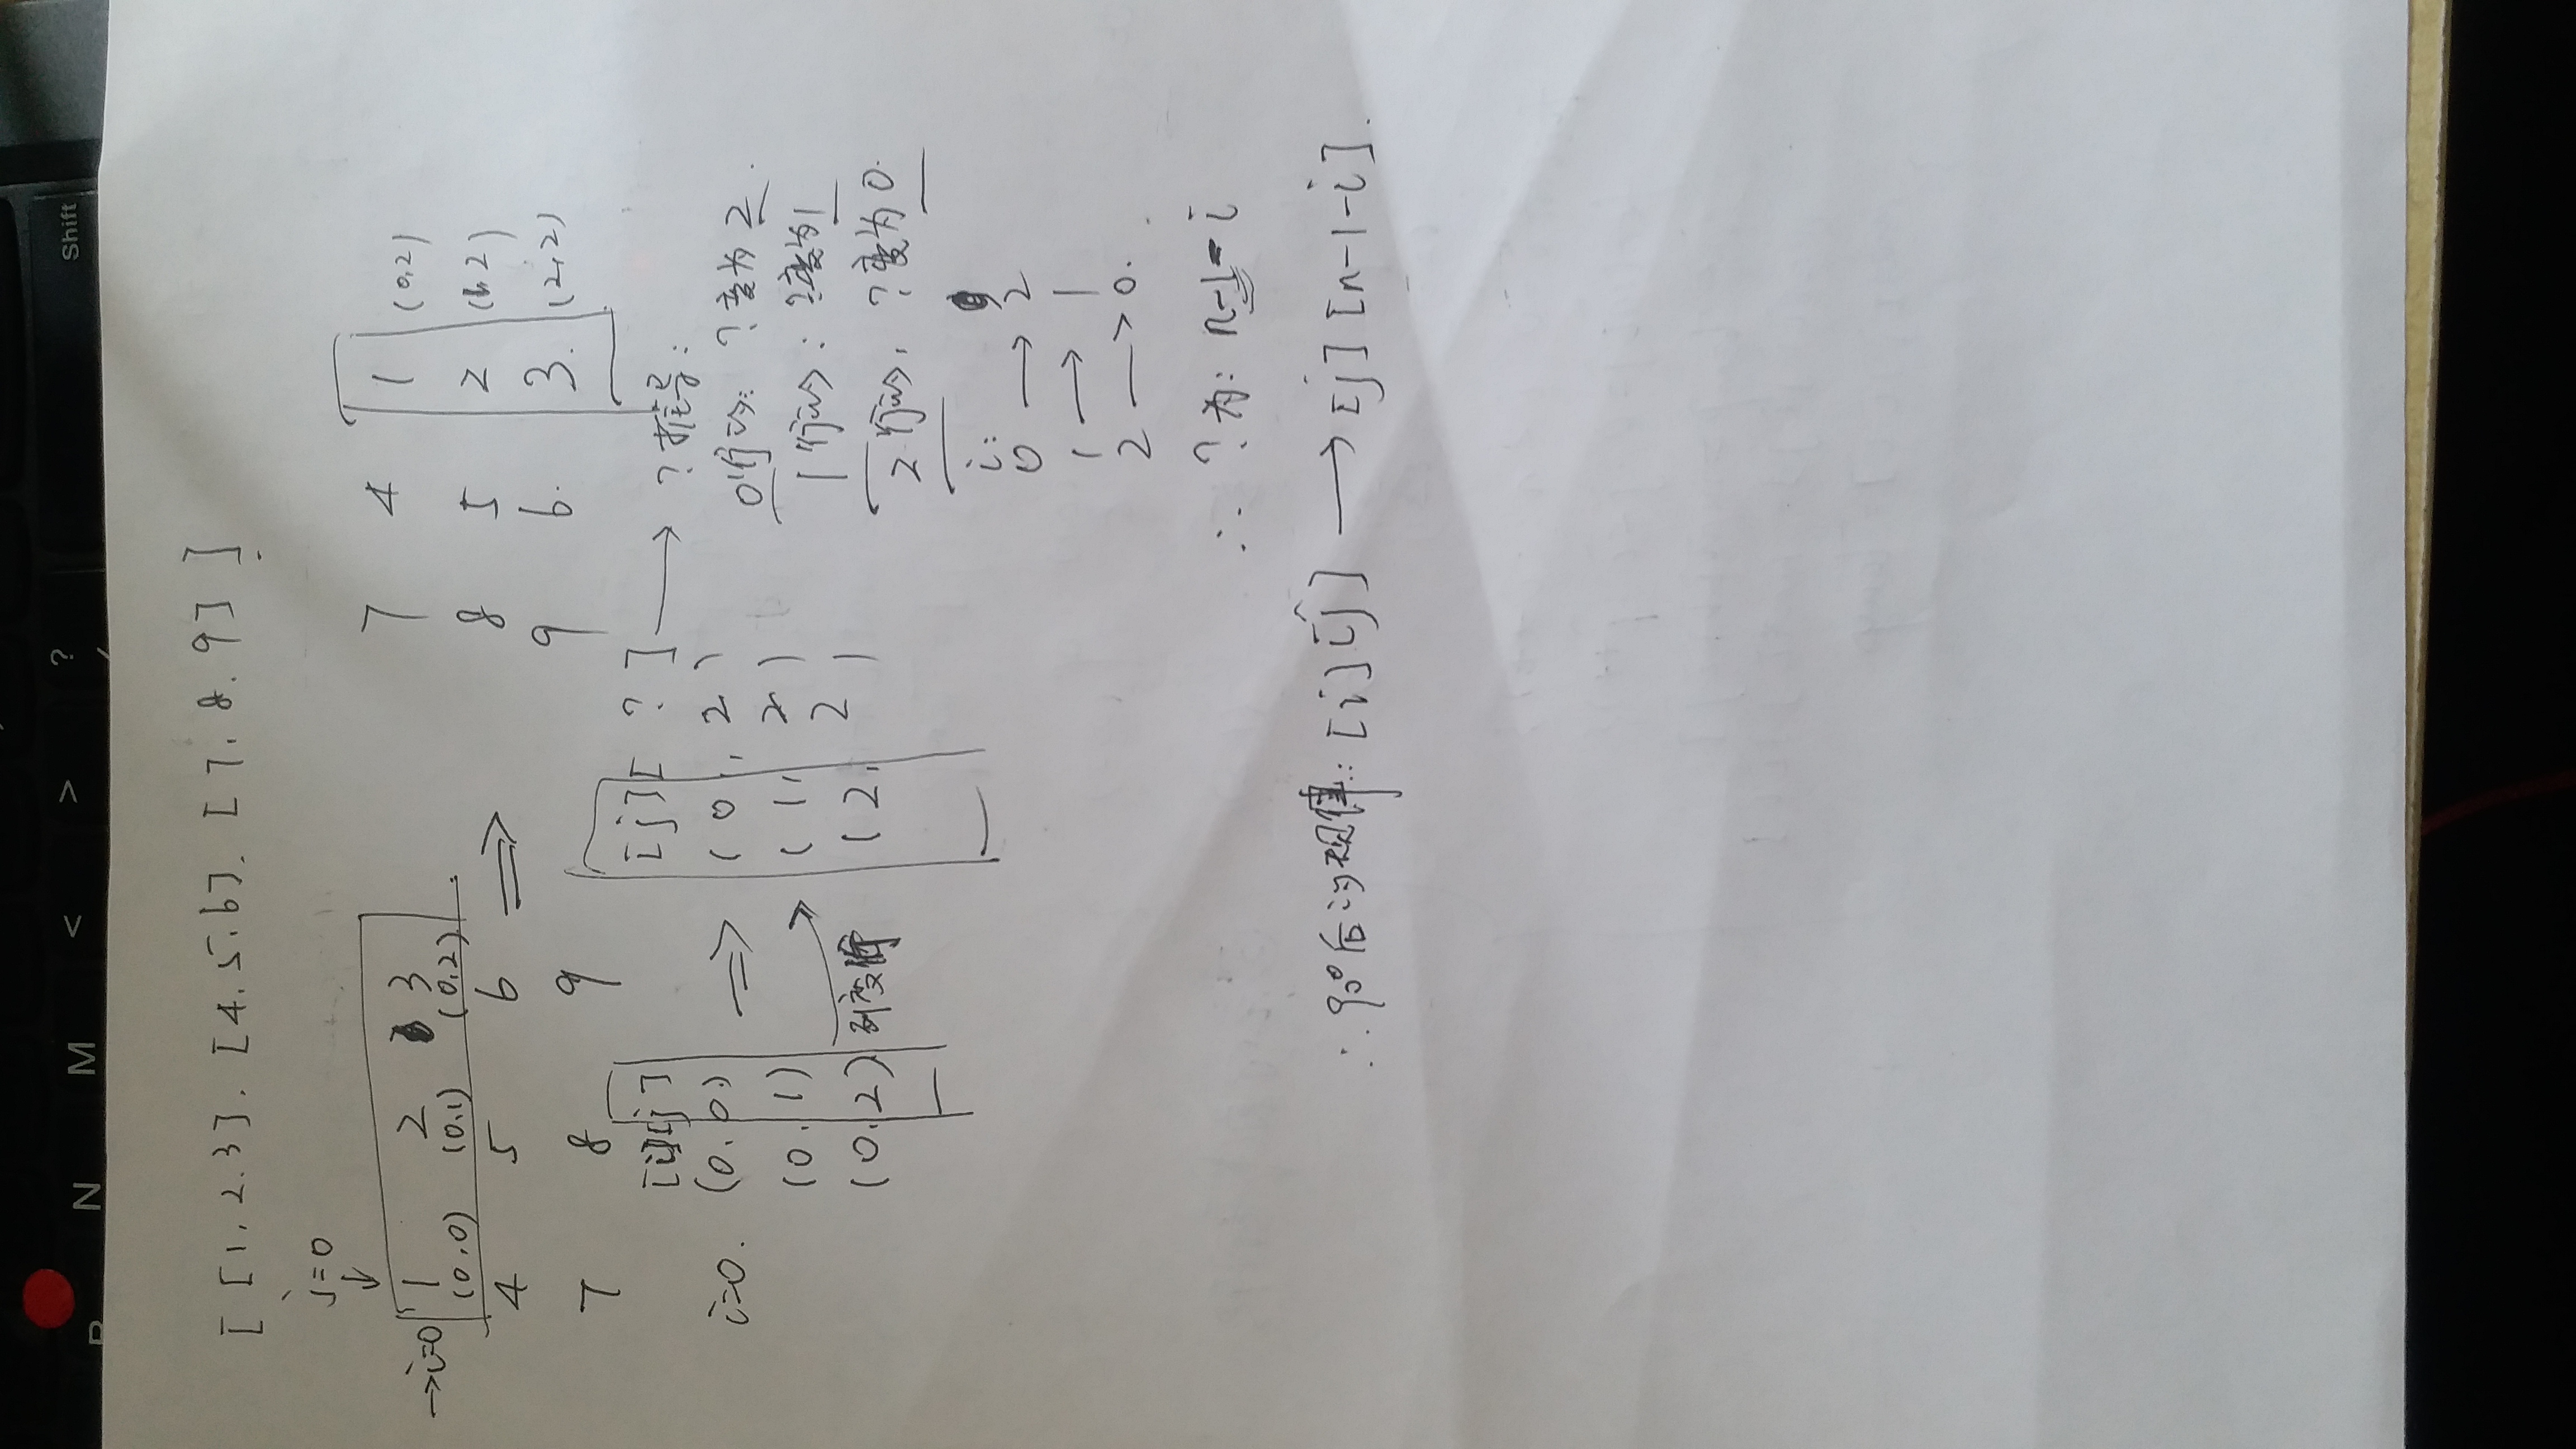 N M < > ? Shift
[ [1, 2, 3], [4, 5, 6], [7, 8, 9] ]
j=0
→i=0 1 2 3
(0,0) (0,1) (0,2)
4 5 6 ⇒
7 8 9
7 4 1 (0,2)
8 5 2 (1,2)
9 6. 3. (2,2)
[i][j] [j][ ? ] → ?推导:
i=0. (0,0) ⇒ (0, 2)
(0,1) (1, 2)
(0,2) 列变行 (2, 2)
0行的: ?变为2.
1行的: ?变为1
2行的, ?变为0.
i:
0 → 2
1 → 1
2 → 0.
∴ ?为: n-1-i
∴ 90°后的规律: [i][j] → [j][n-1-i].